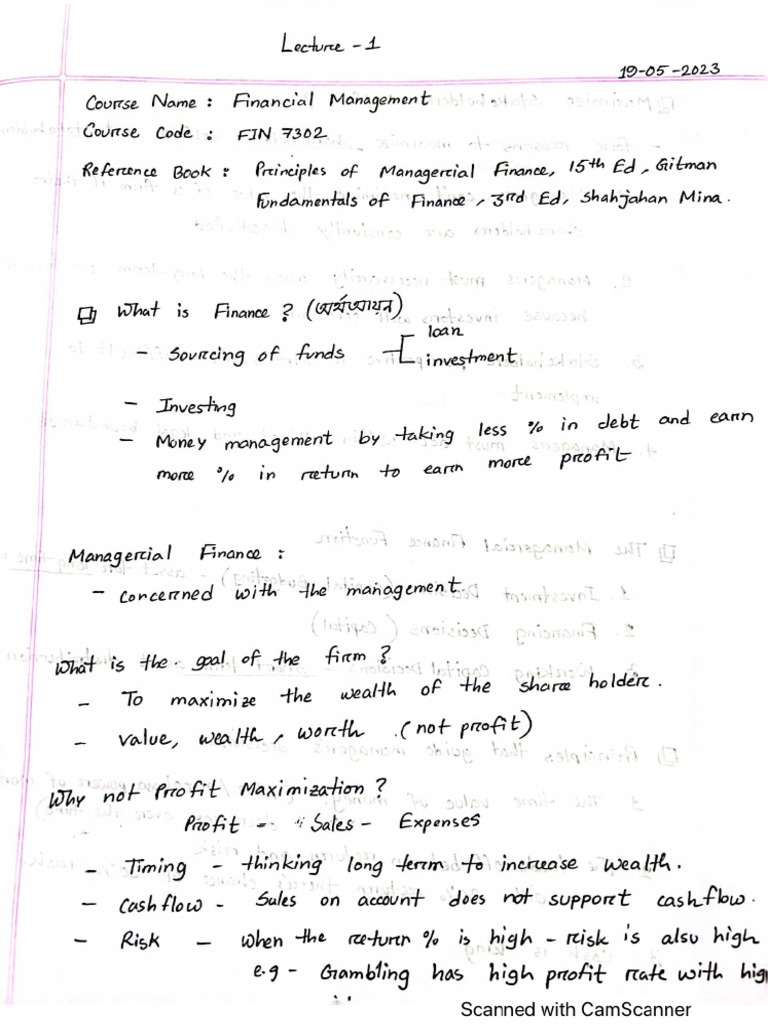 Lecture - 1
19-05-2023
Course Name : Financial Management
Course Code : FIN 7302
Reference Book : Principles of Managerial Finance, 15th Ed, Gitman
Fundamentals of Finance, 3rd Ed, Shahjahan Mina.
What is Finance ? (অর্থায়ন)
- Sourcing of funds
loan
investment
- Investing
- Money management by taking less % in debt and earn
more % in return to earn more profit
Managerial Finance :
- concerned with the management
What is the goal of the firm ?
- To maximize the wealth of the share holder.
- value, wealth, worth (not profit)
Why not Profit Maximization ?
Profit - Sales - Expenses
- Timing - thinking long term to increase wealth.
- Cash flow - Sales on account does not support cashflow.
- Risk - When the return % is high - risk is also high
e.g - Gambling has high profit rate with hig
Scanned with CamScanner